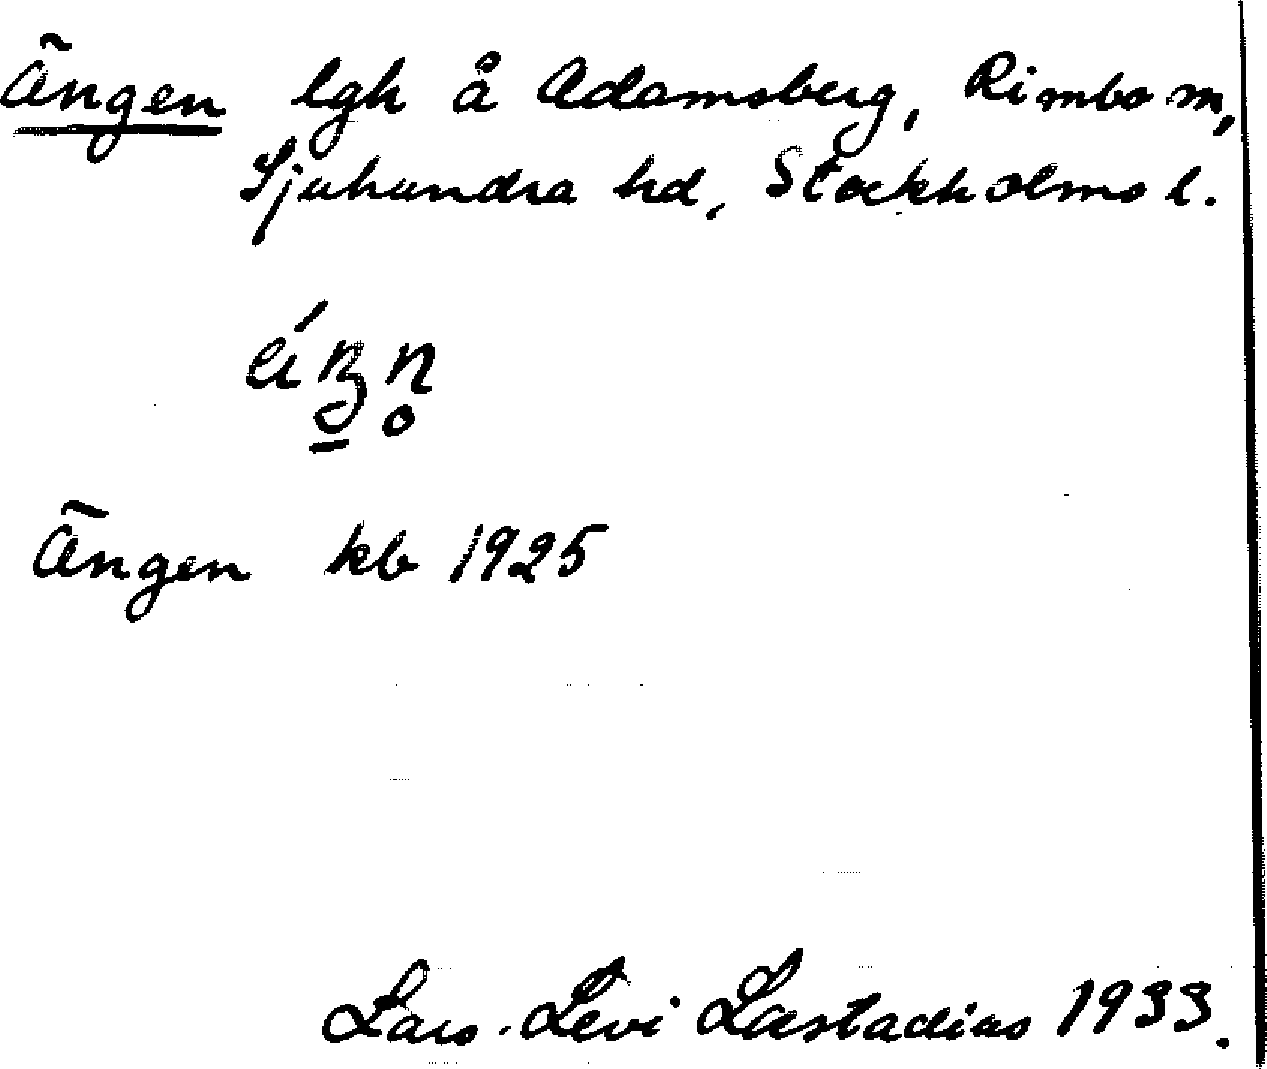 Ängen lgh å Adamsberg, Rimbo sn,
Sjuhundra hd, Stockholms l.
Ängen kb 1925
Lars-Levi Læstadius 1933.